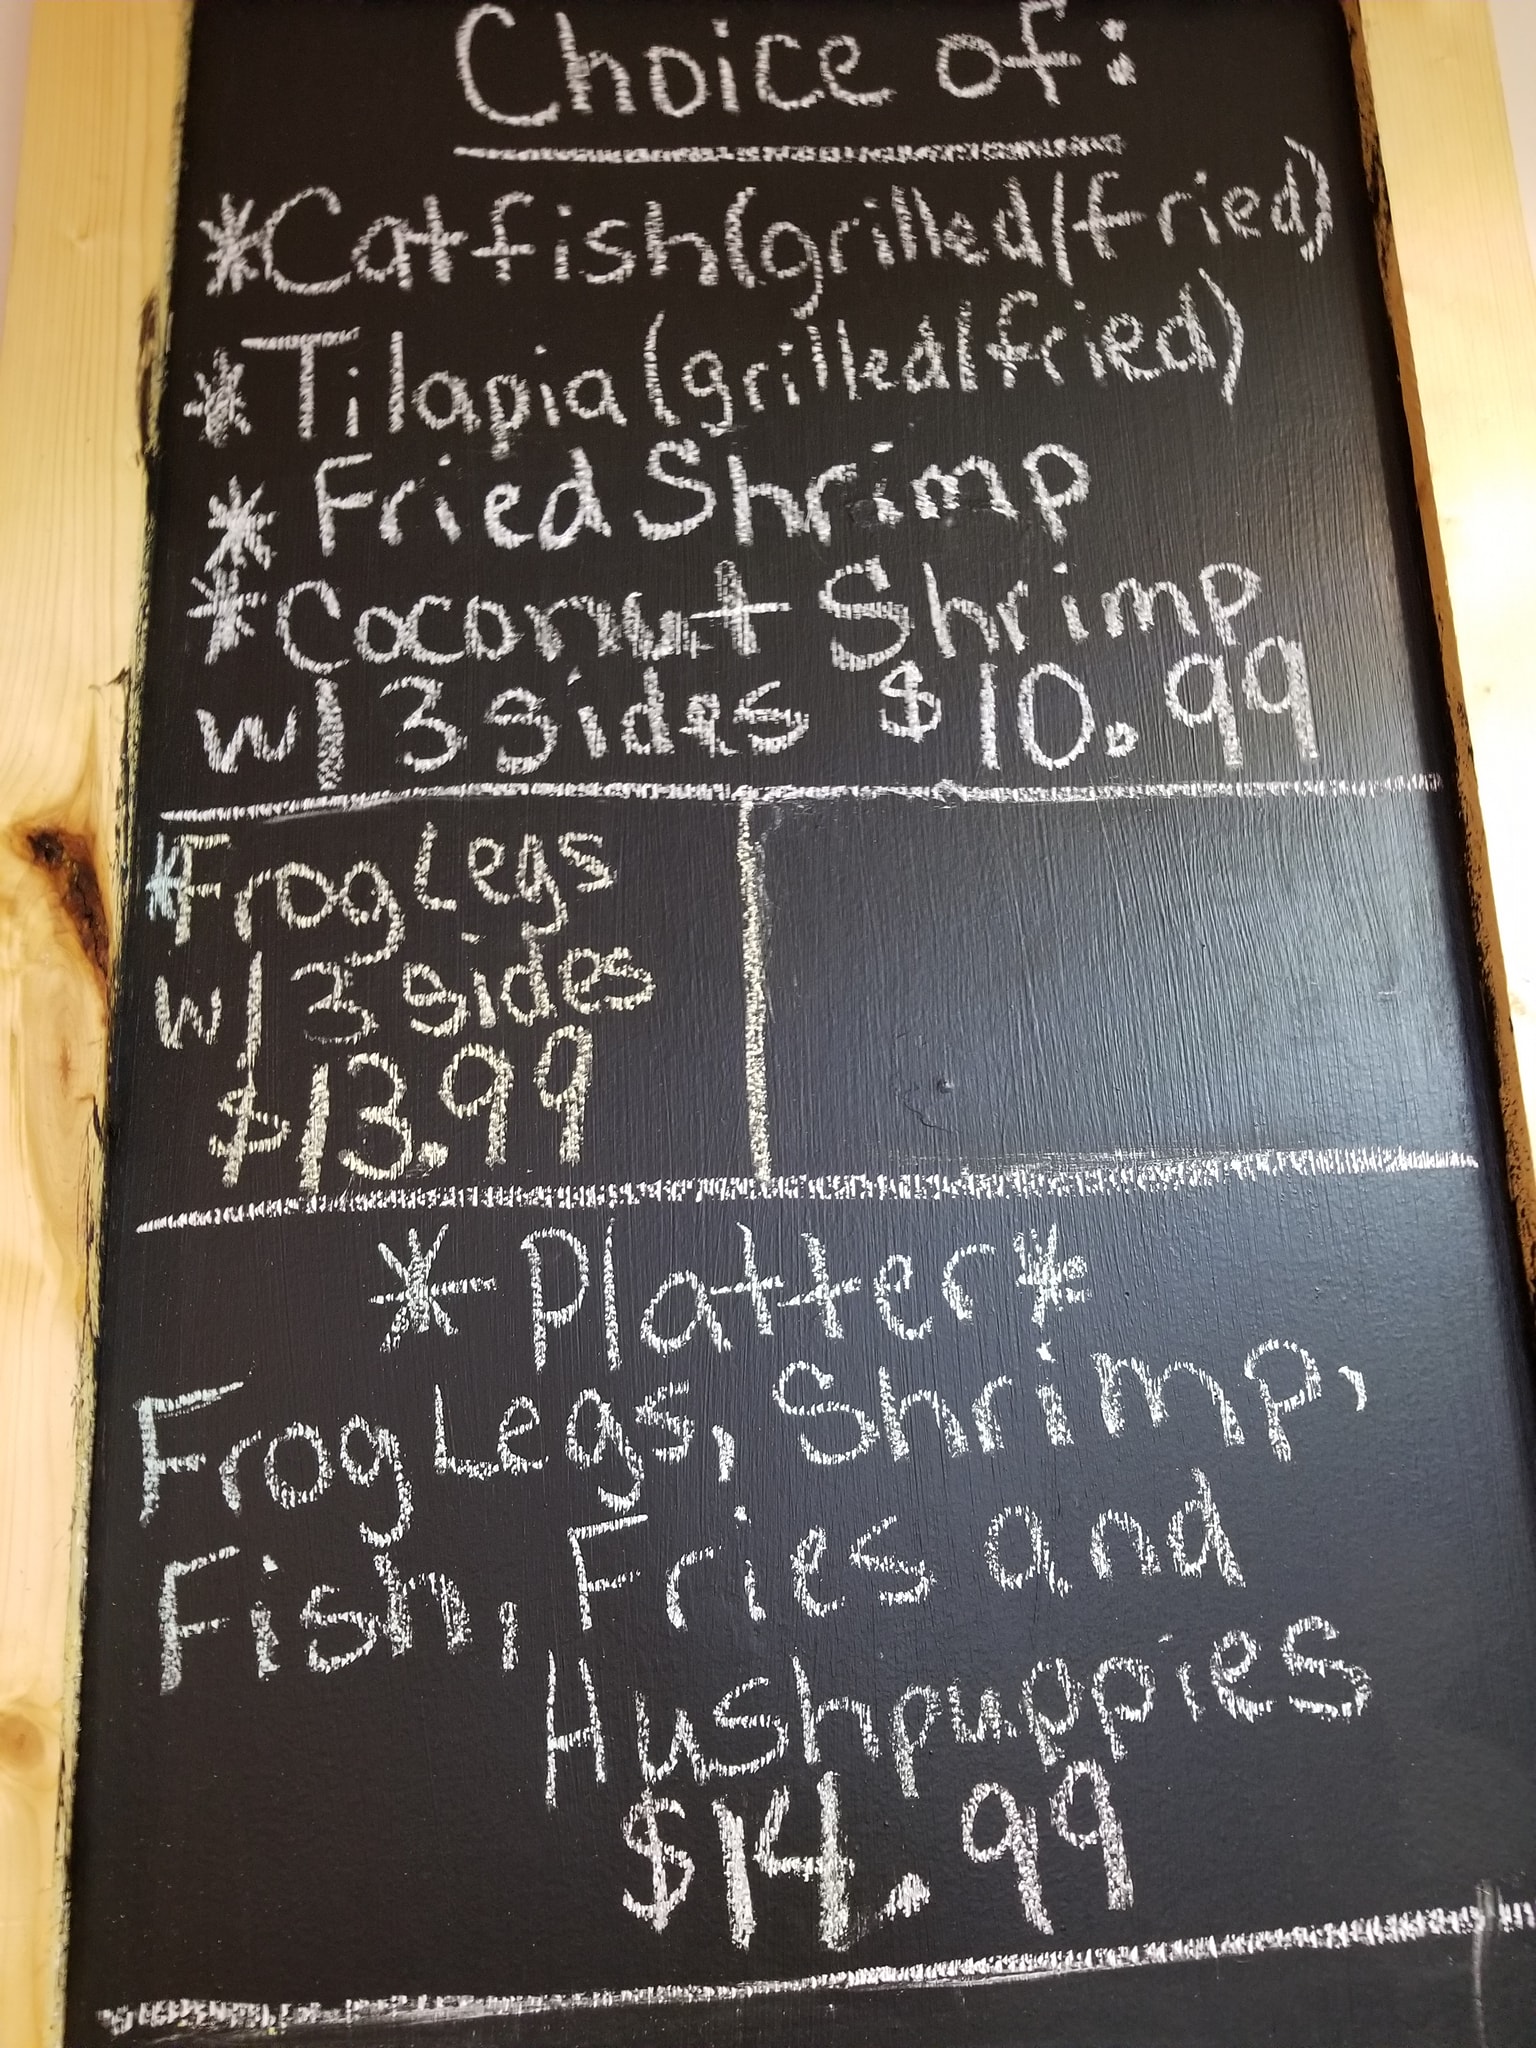 Choice of:
*Catfish(grilled/fried)
*Tilapia(grilled/fried)
*Fried Shrimp
*Coconut Shrimp
w/ 3 sides $10.99
*Frog Legs
w/ 3 sides
$13.99
*Platter*
Frog Legs, Shrimp,
Fish, Fries and
Hushpuppies
$14.99